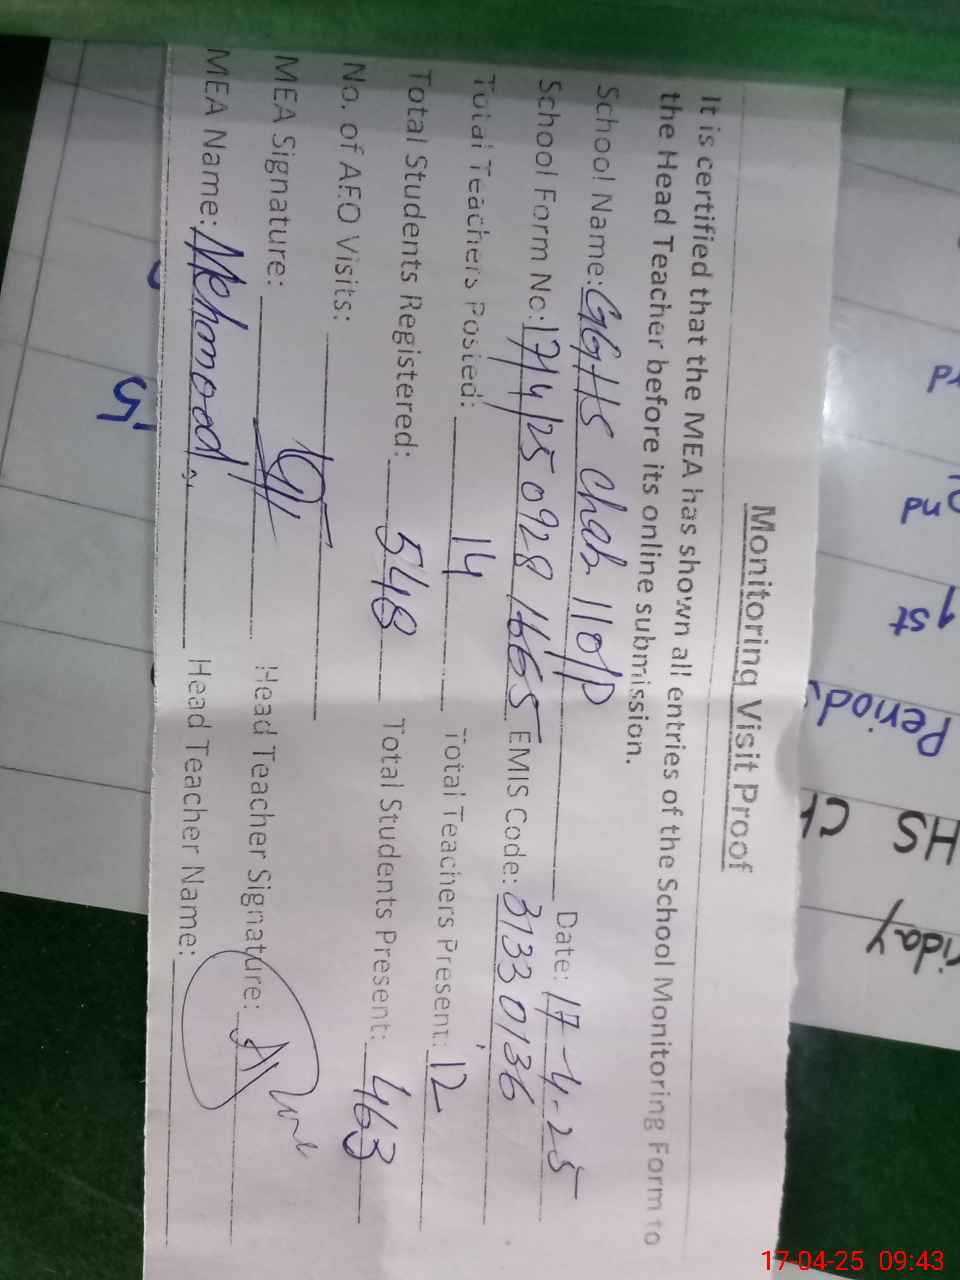 Monitoring Visit Proof
It is certified that the MEA has shown all entries of the School Monitoring Form to
the Head Teacher before its online submission.
School Name: GGHS Chak 110/P Date: 17-4-25
School Form No: 1714/25 0928 1665 EMIS Code: 31330136
Total Teachers Posted: 14 Total Teachers Present: 12
Total Students Registered: 548 Total Students Present: 463
No. of AEO Visits:
MEA Signature: Head Teacher Signature:
MEA Name: Mehmood Head Teacher Name:
iday
HS Ch
Period.
1st
nd
rd
5
17-04-25 09:43